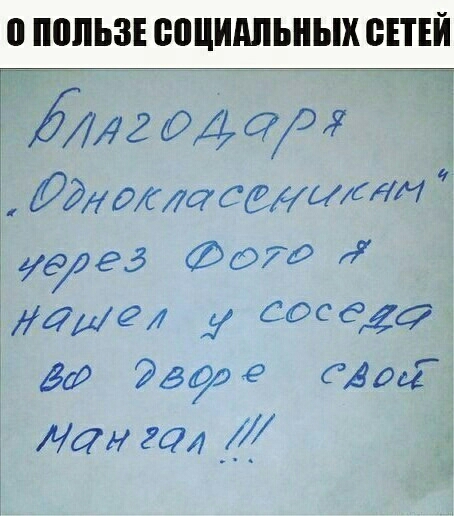 О ПОЛЬЗЕ СОЦИАЛЬНЫХ СЕТЕЙ
Благодаря
„Одноклассникам“
через Фото я
нашел у соседа
во дворе свой
мангал!!!